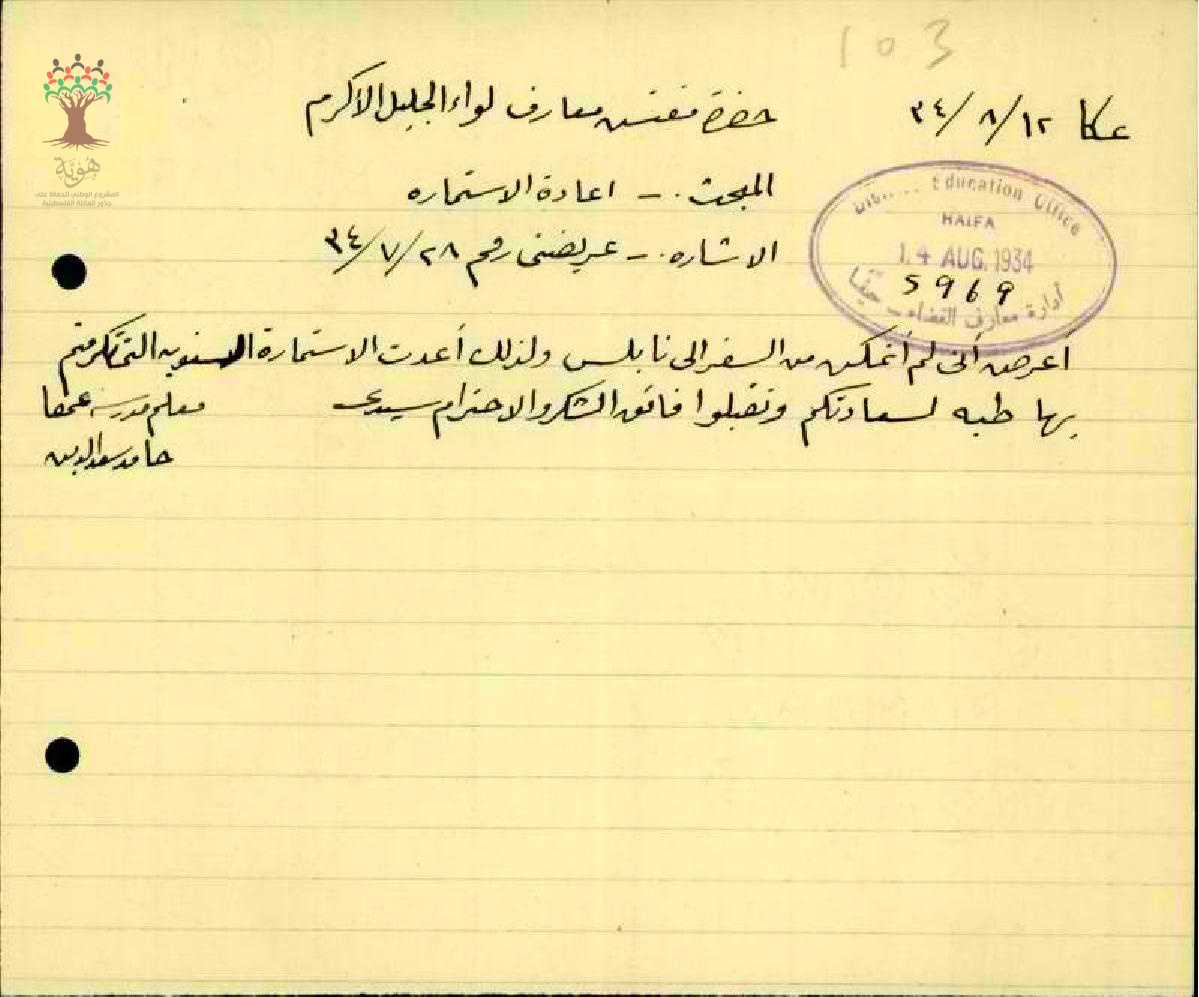 103
عكا ١٢/٨/٣٤
حضرة مفتش معارف لواء الجليل الاكرم
المبحث . – اعادة الاستماره
الاشاره . – عريضتى رقم ٢٨/٧/٣٤
District Education Office
HAIFA
14 AUG. 1934
5969
أدارة معارف القضاء حيفا
أعرض أنى لم أتمكن من السفر الى نابلس ولذلك أعدت الاستمارة السنويه التى تكرمتم
بها طيه لسعادتكم وتقبلوا فائق الشكر والاحترام سيدى
معلم مدرسة عمقا
حامد سعد الدين
هُوِيَّة
المشروع الوطني للحفاظ على
جذور العائلة الفلسطينية